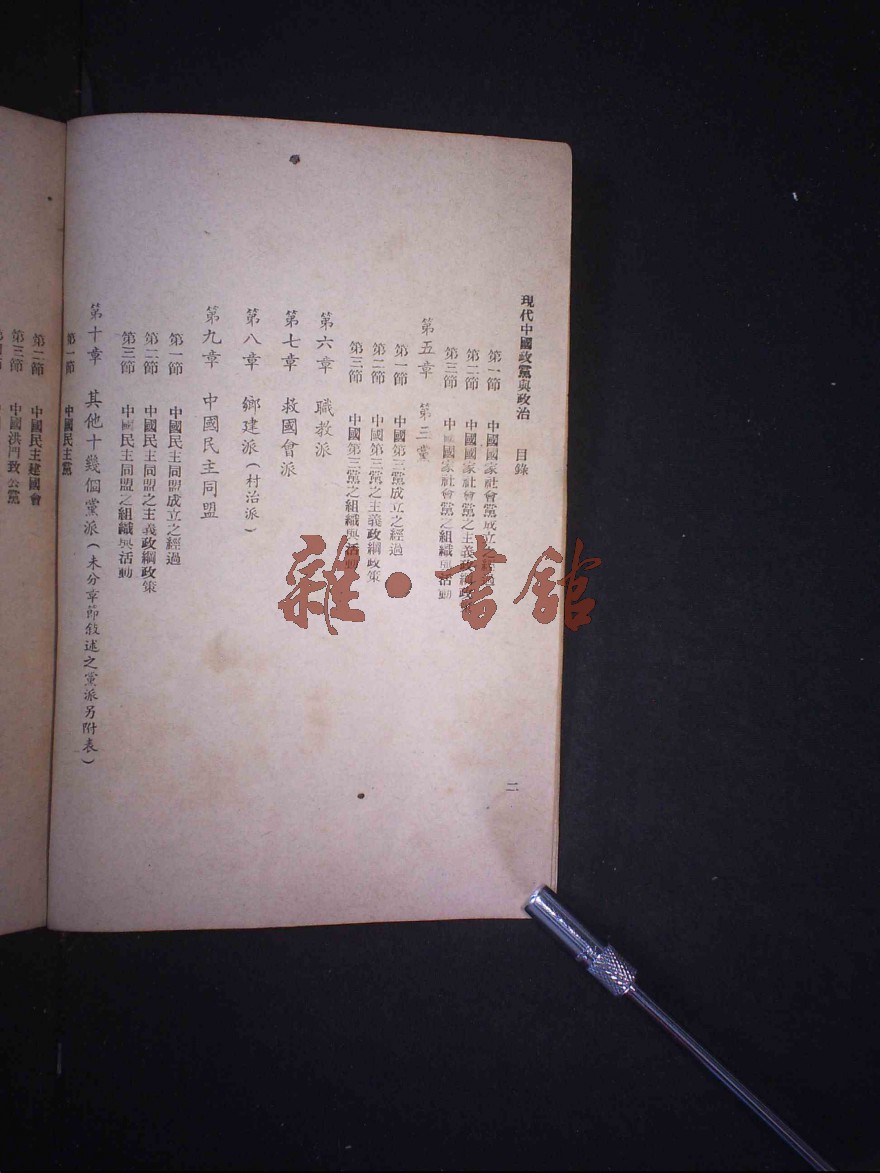 現代中國政黨與政治 目錄 二
第一節 中國國家社會黨成立之經過
第二節 中國國家社會黨之主義政綱政策
第三節 中國國家社會黨之組織與活動
第五章 第三黨
第一節 中國第三黨成立之經過
第二節 中國第三黨之主義政綱政策
第三節 中國第三黨之組織與活動
第六章 職教派
第七章 救國會派
第八章 鄉建派(村治派)
第九章 中國民主同盟
第一節 中國民主同盟成立之經過
第二節 中國民主同盟之主義政綱政策
第三節 中國民主同盟之組織與活動
第十章 其他十幾個黨派(未分章節敘述之黨派另附表)
第一節 中國民主黨
第二節 中國民主建國會
第三節 中國洪門致公黨
雜·書館